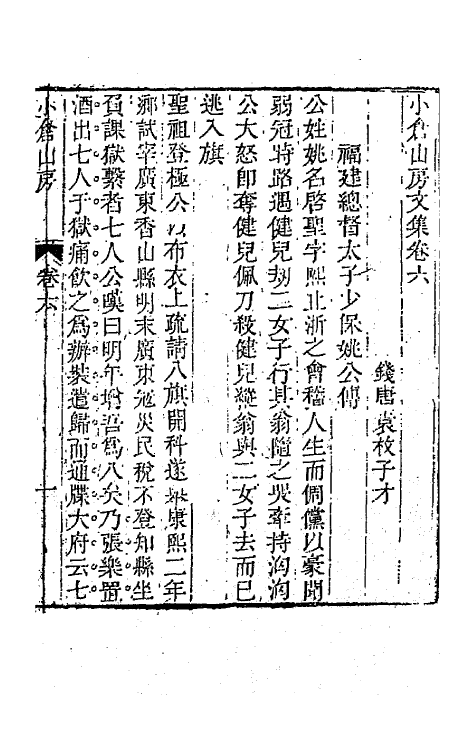 小倉山房文集卷六
錢唐袁枚子才
福建總督太子少保姚公傳
公姓姚名啓聖字熙止浙之會稽人生而倜儻以豪聞
弱冠時路遇健兒刼二女子行其翁隨之哭牽持洶洶
公大怒即奪健兒佩刀殺健兒縱翁與二女子去而已
逃入旗
聖祖登極公以布衣上疏請八旗開科遂舉康熙二年
鄉試宰廣東香山縣明末廣東冦災民稅不登知縣坐
負課獄繫者七人公嘆曰明年增吾爲八矣乃張樂置
酒出七人于獄痛飲之爲辦裝遣歸而通牒大府云七
小倉山房
卷六
一